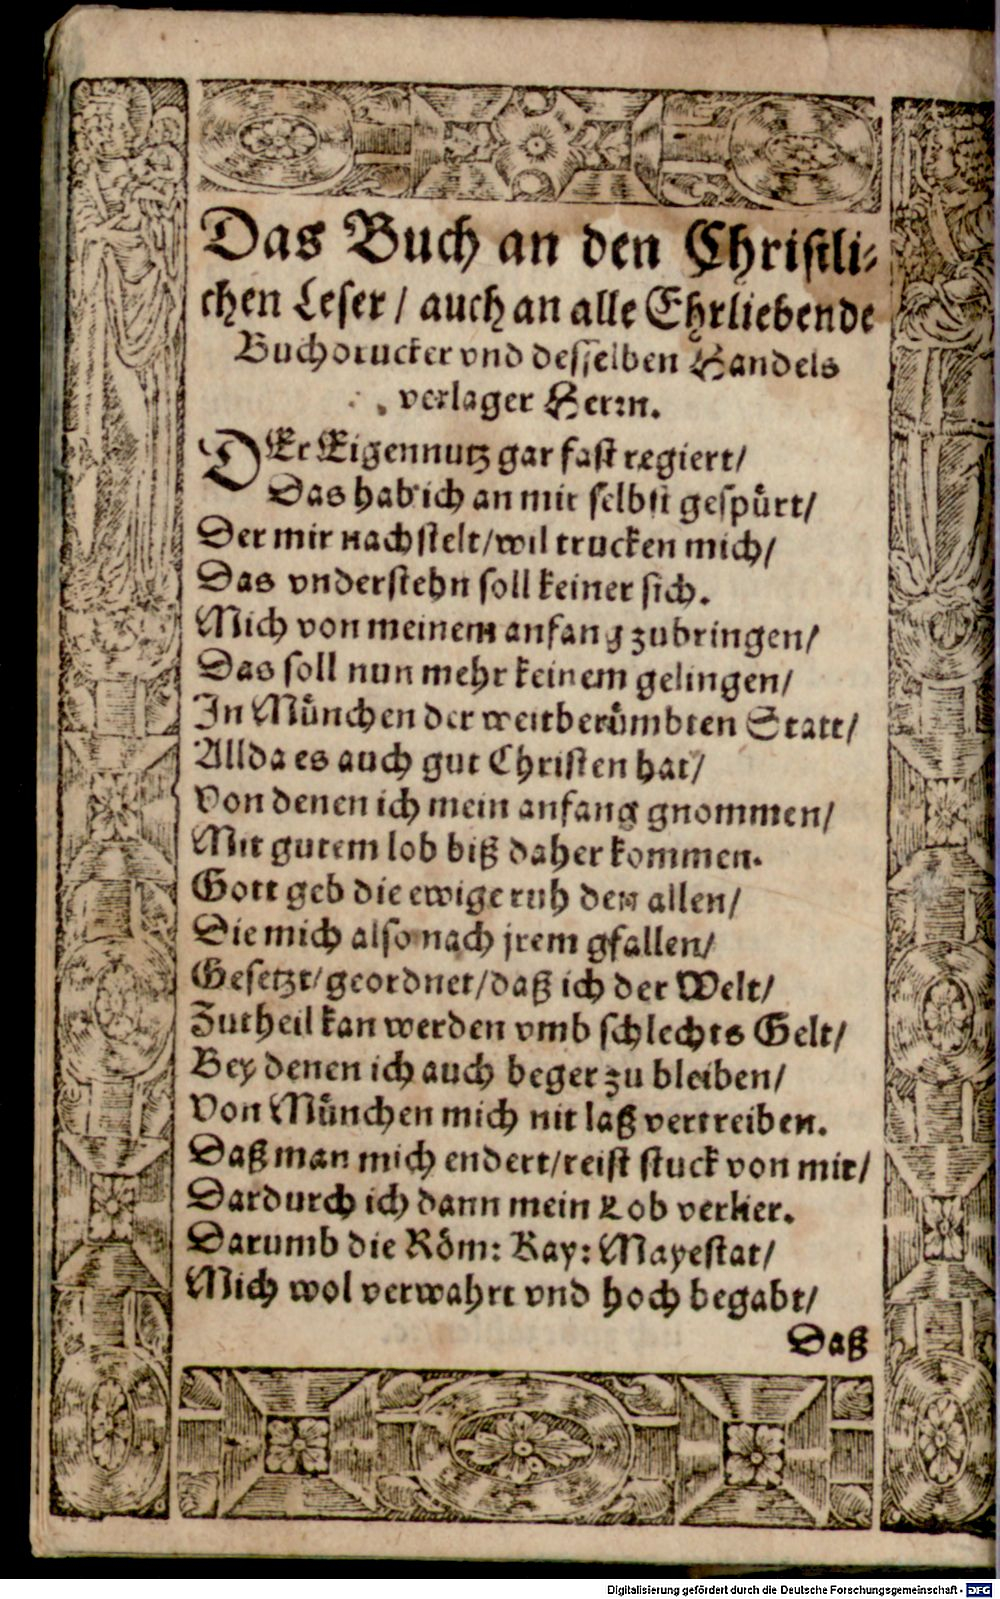 Das Buch an den Christli-
chen Leser / auch an alle Ehrliebende
Buchdrucker vnd desselben Handels
verlager Herrn.
DEr Eigennutz gar fast regiert/
Das hab ich an mir selbst gespürt/
Der mir nachstelt/wil trucken mich/
Das vnderstehn soll keiner sich.
Mich von meinem anfang zubringen/
Das soll nun mehr keinem gelingen/
In München der weitberümbten Statt/
Allda es auch gut Christen hat/
Von denen ich mein anfang gnommen/
Mit gutem lob biß daher kommen.
Gott geb die ewige ruh den allen/
Die mich also nach jrem gfallen/
Gesetzt/geordnet/daß ich der Welt/
Zutheil kan werden vmb schlechts Gelt/
Bey denen ich auch beger zu bleiben/
Von München mich nit laß vertreiben.
Daß man mich endert/reist stuck von mir/
Dardurch ich dann mein Lob verlier.
Darumb die Röm: Kay: Mayestat/
Mich wol verwahrt vnd hoch begabt/
Daß
Digitalisierung gefördert durch die Deutsche Forschungsgemeinschaft - DFG